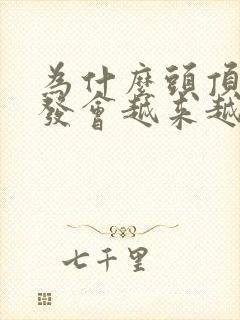 為什麼頭頂
發會越来越
七千里